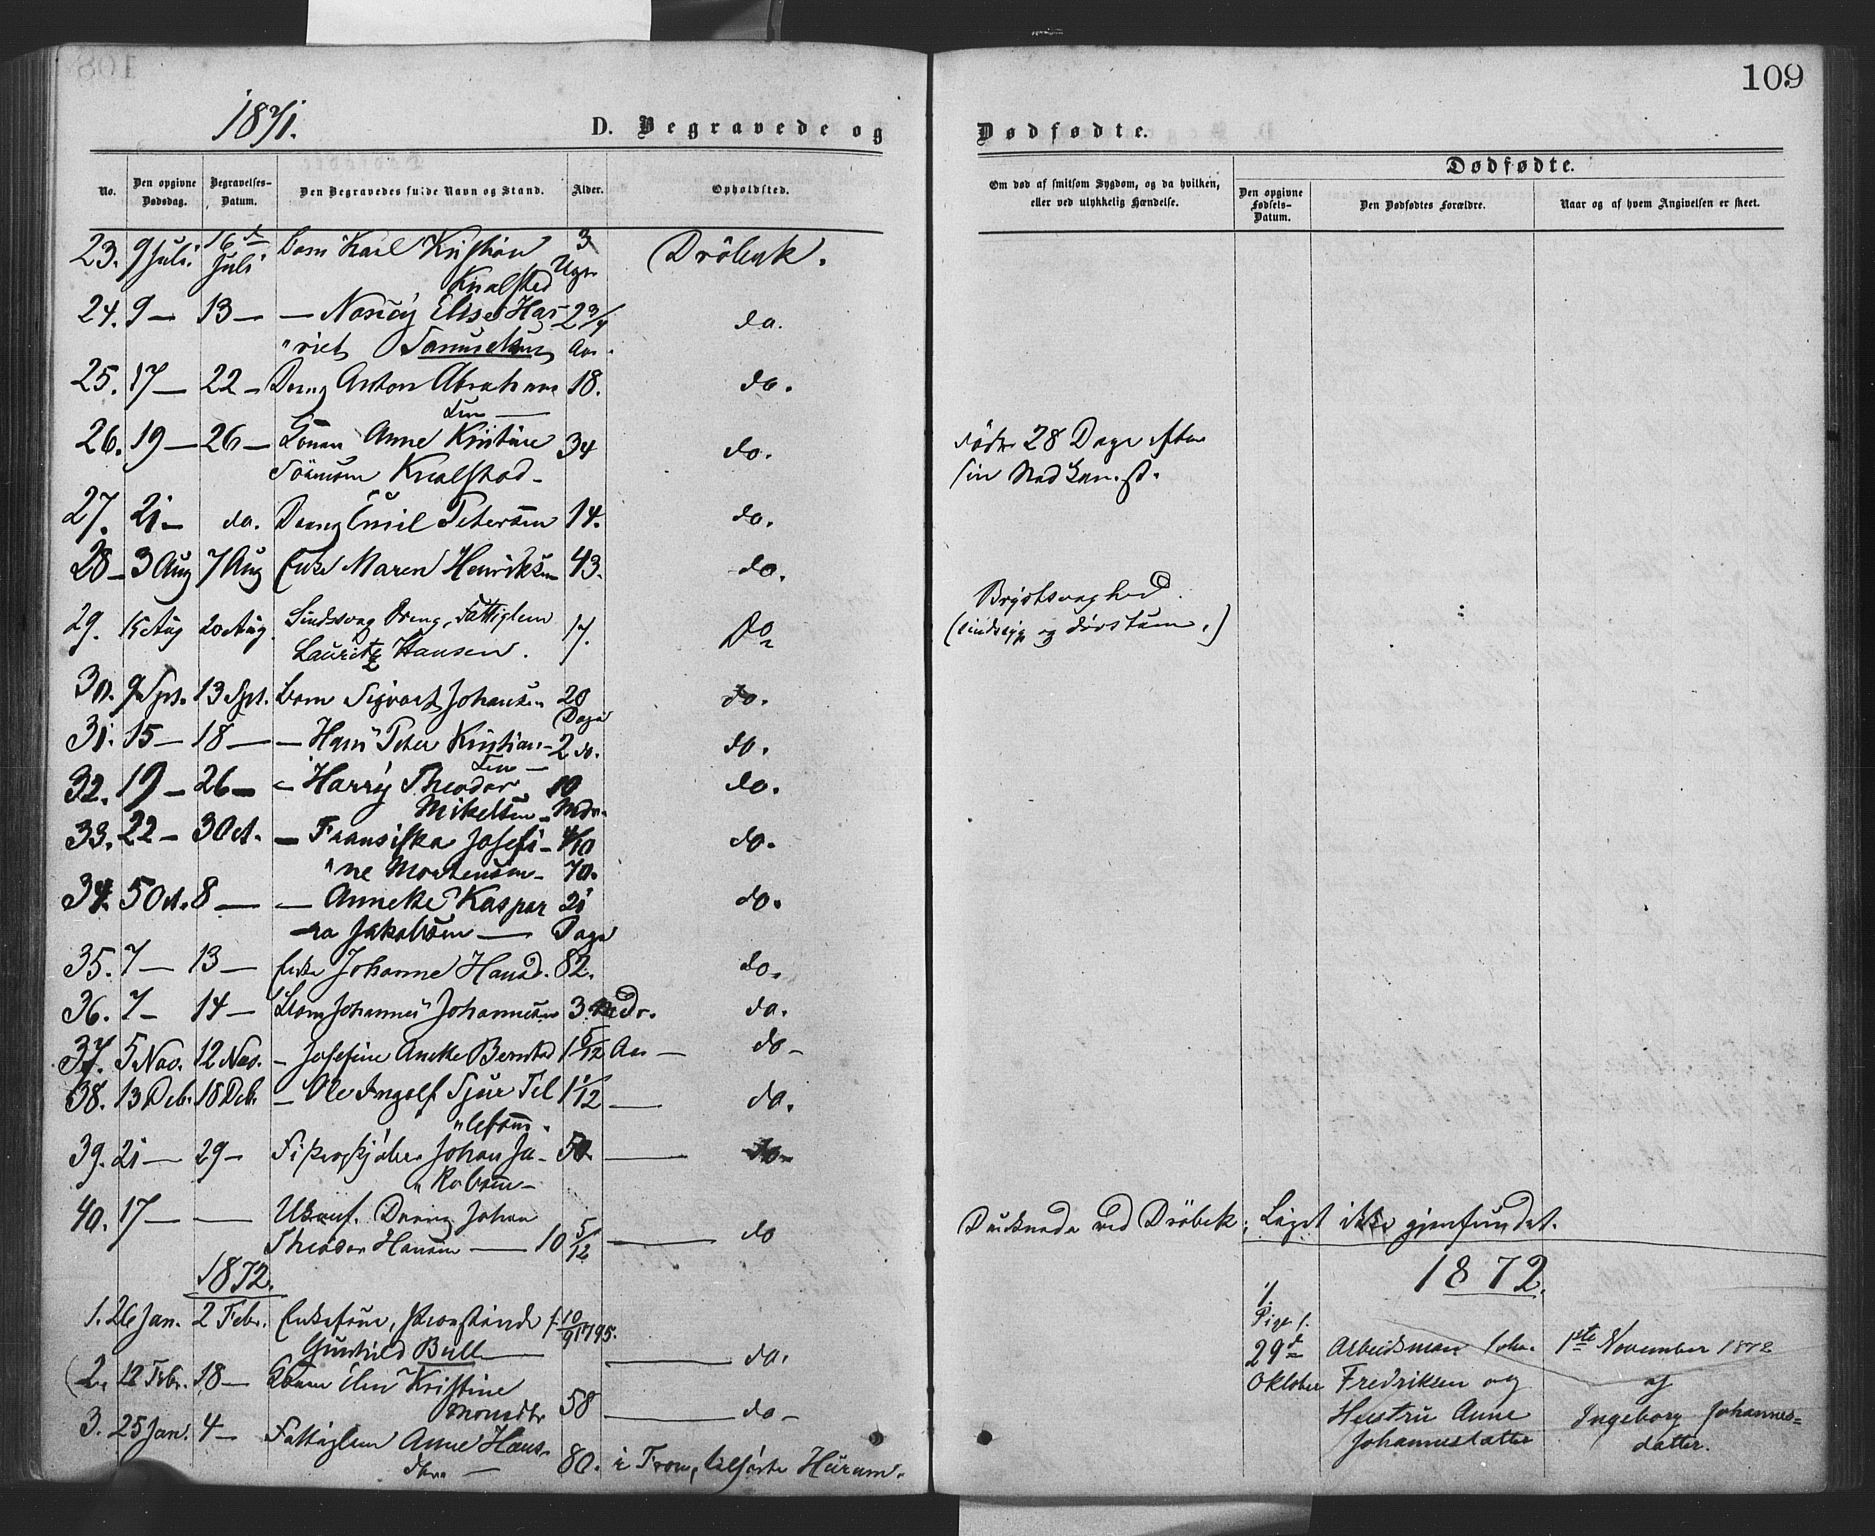 109
1871.
D. Begravede og
Dødfødte.
Dødfødte.
No.
Den opgivne Dødsdag.
Begravelses-Datum.
Den Begravedes fulde Navn og Stand.
Alder.
Opholdssted.
Om død af smitsom Sygdom, og da hvilken,
eller ved ulykkelig Hændelse.
Den opgivne Fødsels-Datum.
Den Dødfødtes Forældre.
Naar og af hvem Angivelsen er skeet.
23. 9 Juli. 16 Juli Barn Karl Kristian 3 Uger Dröbak.
Knalstad
24. 9 — 13 — — Nancÿ Elise Har- 2 3/4 do.
"riet Samuelsen Aar.
25. 17 — 22 — Dreng Anton Abraham 18. do.
sen —
26. 19 — 26 — Konen Anne Kristine 34 do. döde 28 Dage efter
Sörensen Knalstad — sin Nedkomst.
27. 21 — do. Dreng Emil Petersen 14. do.
28 — 3 Aug 7 Aug Enke Maren Henriksen 43. do.
29. 15 Aug 20 Aug. Sindssvag Dreng, Fattiglem 17. Do Brystsvaghed.
Lauritz Hansen. (sindssyg og døvstum.)
30. 9 Spt. 13 Spt. Barn Sigvart Johansen 20 Dage do.
31. 15 — 18 — — Hans Peter Kristian- 2 do. do.
sen —
32. 19 — 26 — — Harrÿ Theodor 10 do.
Mikelsen — Mdr.
33. 22 — 3 Oct. — Fransiska Josefi- do.
"ne Mortensen —
34. 5 Oct. 8 — — Anneke Kaspar 21 do.
ra Jakobsen — Dage
35. 7 — 13 — Enke Johanne Hansd. 82. do.
36. 7 — 14 — Barn Johannes Johannesen 3 Mdr. do.
37. 5 Nov. 12 Nov. — Josefine Aneke Berntsd 1 5/12 Aar — do —
38. 13 Deb. 18 Deb. — Ole Ingolf Sjur Tel 1 1/12 — do.
"lefsen.
39. 21 — 29 — Johan Ja- 50 — do —
"kobsen —
40. 17 — — Ukonf. Dreng Johan
Theodor Hansen — 10 5/12 — do Druknede ved Dröbak, Liget ikke gjenfundet.
1872.
1872.
1. 26 Jan. 2 Febr. f. 10/9 1795.
Gunhild Bull — — do.
2. 12 Febr. 18 — Konen Elen Kristine
58 — do —
3. 25 Jan. 4 — Fattiglem Anne Hans-
dtr — 80. i Fron, Hurum.
1.
Pige f.
29de Arbeidsmand Joh. 1ste November 1872
Oktober Fredriksen og af
Hustru Anne Ingeborg Johannes=
Johannesdatter datter.